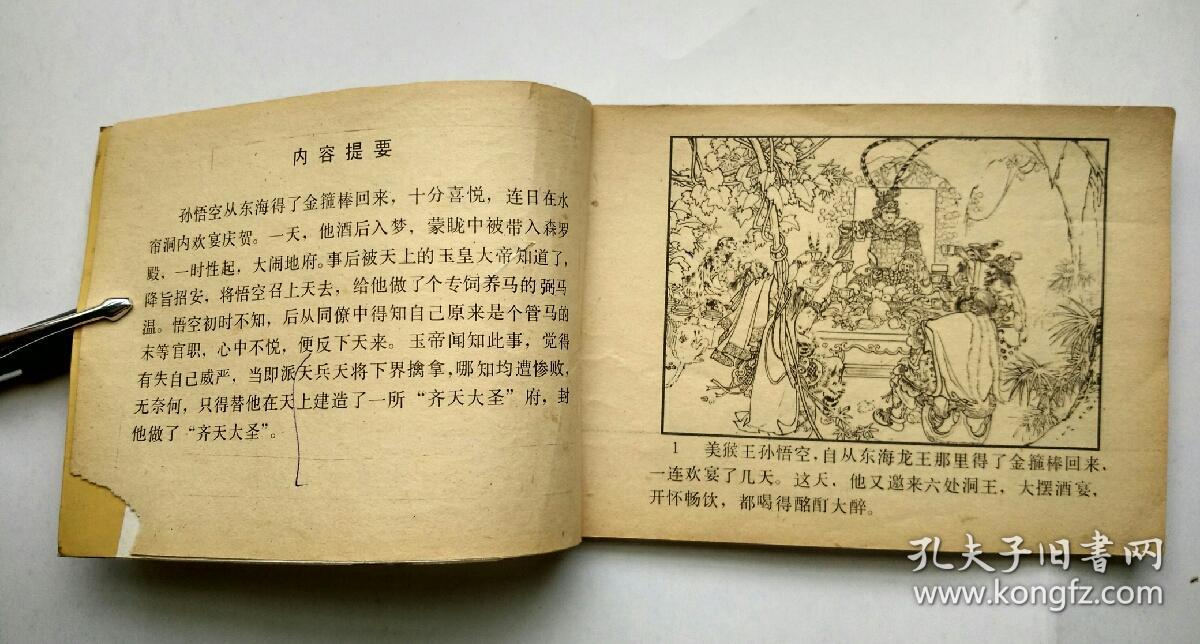 内容提要
孙悟空从东海得了金箍棒回来，十分喜悦，连日在水
帘洞内欢宴庆贺。一天，他酒后入梦，蒙眬中被带入森罗
殿，一时性起，大闹地府。事后被天上的玉皇大帝知道了，
降旨招安，将悟空召上天去，给他做了个专饲养马的弼马
温。悟空初时不知，后从同僚中得知自己原来是个管马的
末等官职，心中不悦，便反下天来。玉帝闻知此事，觉得
有失自己威严，当即派天兵天将下界擒拿，哪知均遭惨败，
无奈何，只得替他在天上建造了一所“齐天大圣”府，封
他做了“齐天大圣”。
1 美猴王孙悟空，自从东海龙王那里得了金箍棒回来，
一连欢宴了几天。这天，他又邀来六处洞王，大摆酒宴，
开怀畅饮，都喝得酩酊大醉。
孔夫子旧书网
www.kongfz.com